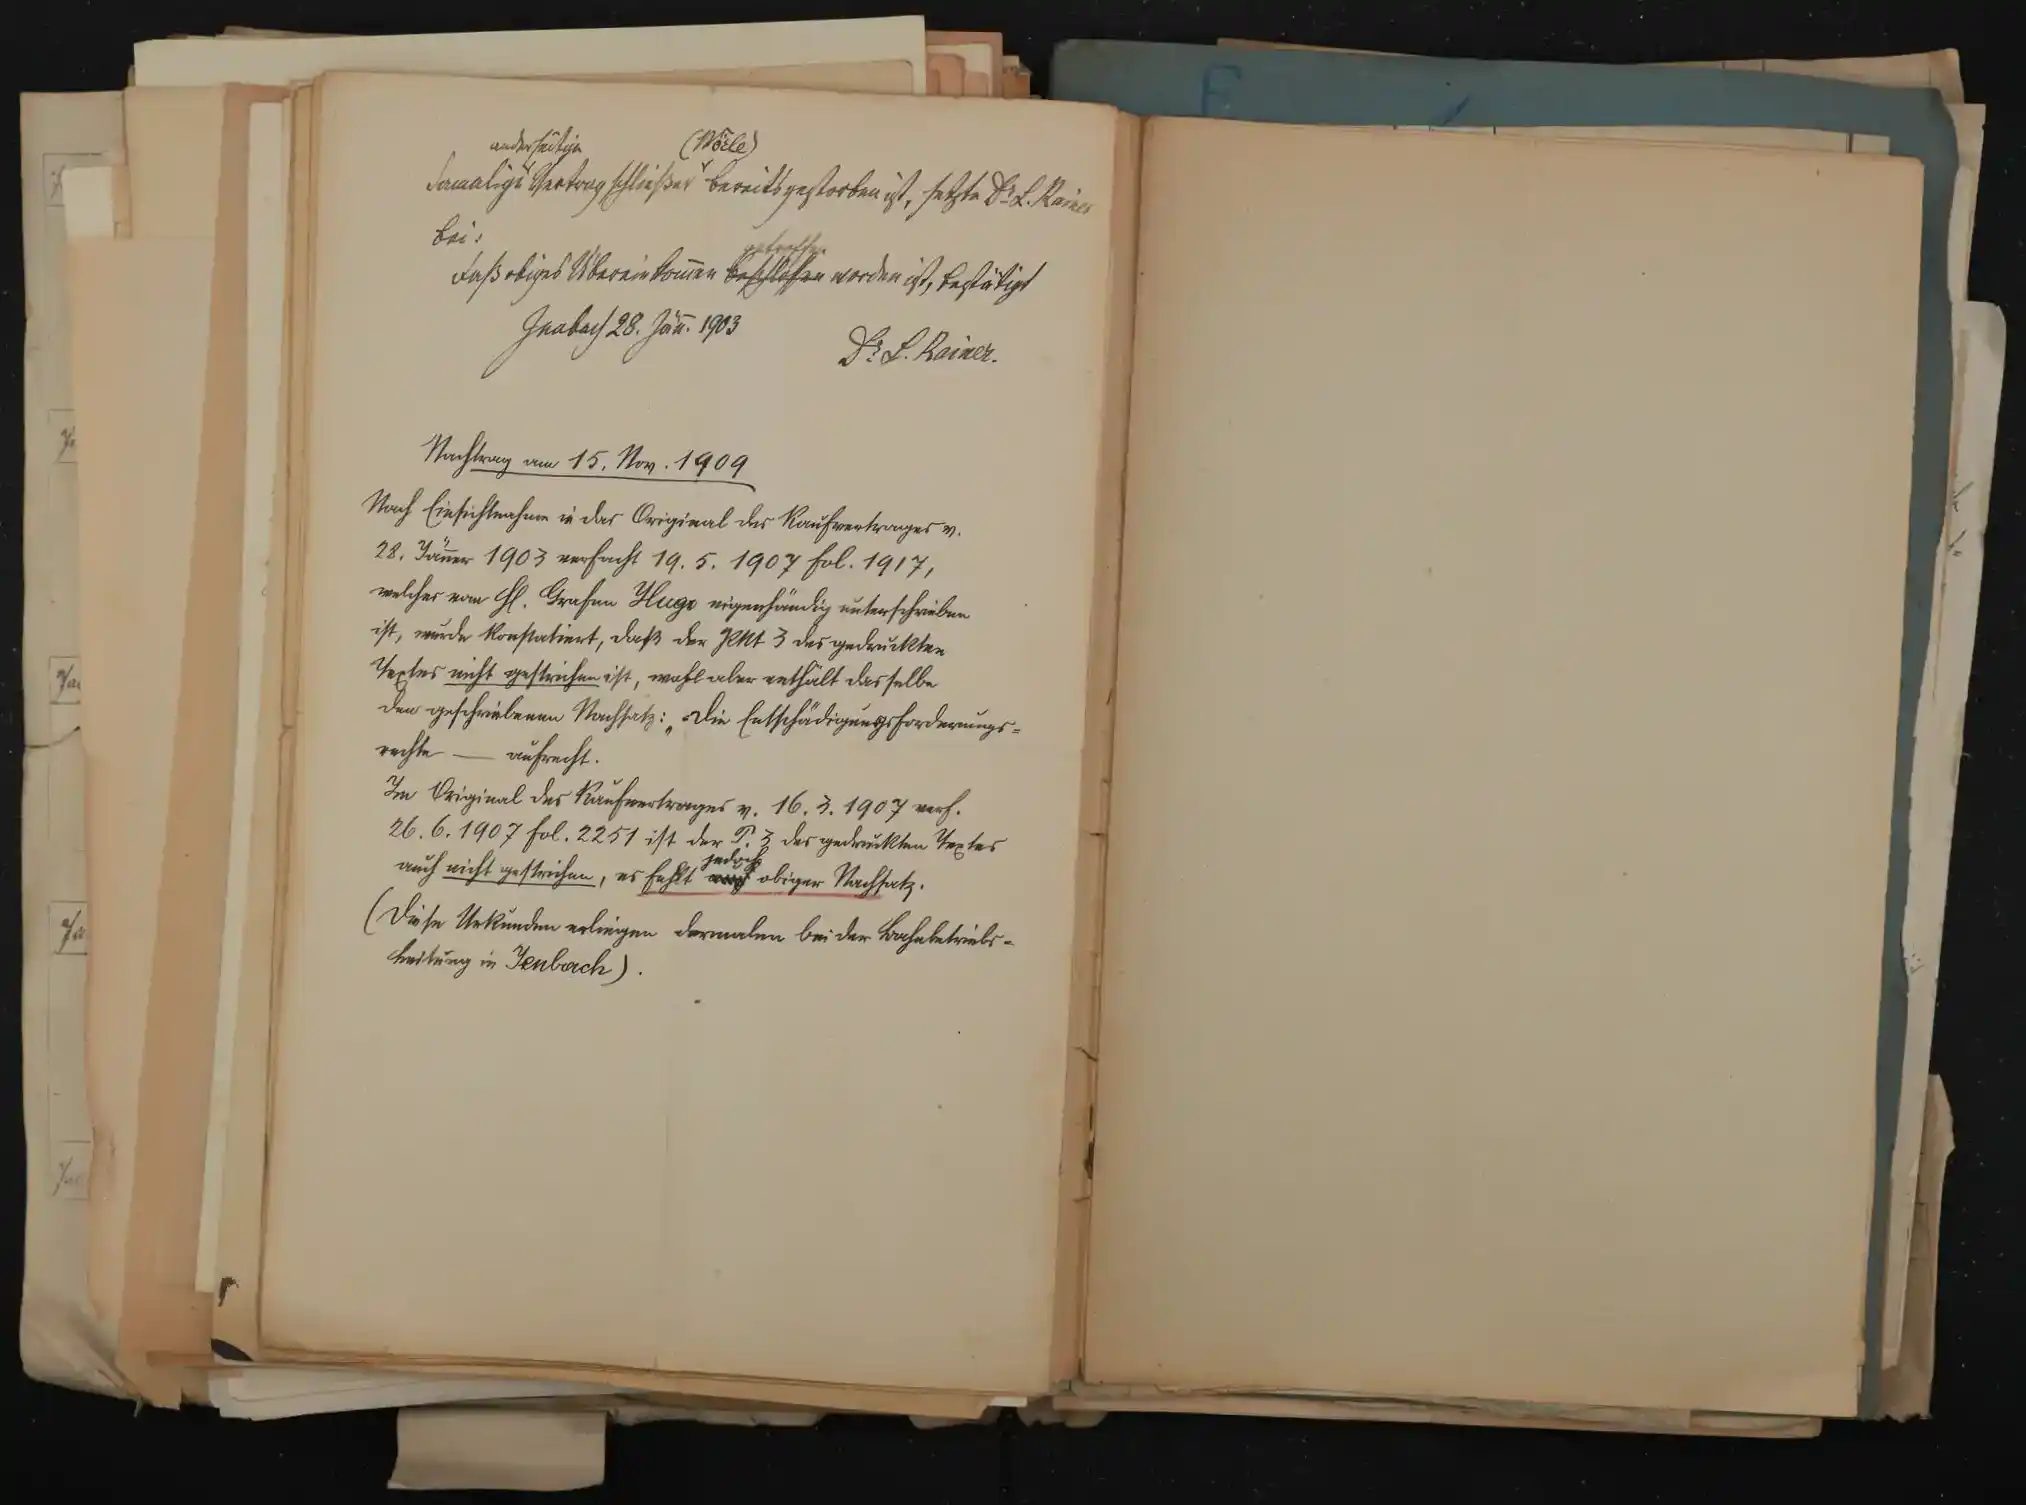 anderseitige (Wörle)
damalige Vertragschließer bereits gestorben ist, setzte Dr. L. Rainer
bei:
getroffen
Daß obiges Übereinkommen beschlossen worden ist, bestätigt
Jenbach 28. Jän̄. 1903
Dr. L. Rainer.
Nachtrag am 15. Nov. 1909
Nach Einsichtnahme in das Original des Kaufvertrages v.
28. Jän̄er 1903 verfacht 19. 5. 1907 fol. 1917,
welcher von H. Grafen Hugo eigenhändig unterschrieben
ist, wurde konstatiert, daß der Pkt 3 des gedruckten
Textes nicht gestrichen ist, wohl aber enthält dasselbe
den geschriebenen Nachsatz: „Die Entschädigungsforderungs-
rechte — aufrecht.
Im Original des Kaufvertrages v. 16. 3. 1907 verf.
26. 6. 1907 fol. 2251 ist der P. 3 des gedruckten Textes
jedoch
auch nicht gestrichen, es fehlt obiger Nachsatz.
(Diese Urkunden erliegen dermalen bei der Bahnbetriebs-
leitung in Jenbach).
F